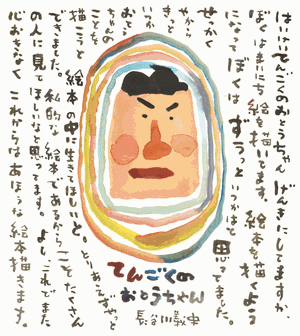 はいけいてんごくのおとうちゃん げんきにしてますか。
ぼくはまいにち絵を描いてます。絵本を描くよう
になってぼくは ずうっと いつかはと 思ってました。
せっかく
やから
きっと
いつか
おとう
ちゃんの
ことを
描こうと
絵本の中で生きてほしいと。とりあえずやっと
できました。私的な絵本であるからこそ、たくさん
の人に見てほしいなと思ってます。 よし、これでまた
心おきなく これからはあほうな絵本描きます。
てんごくの
おとうちゃん
長谷川義史